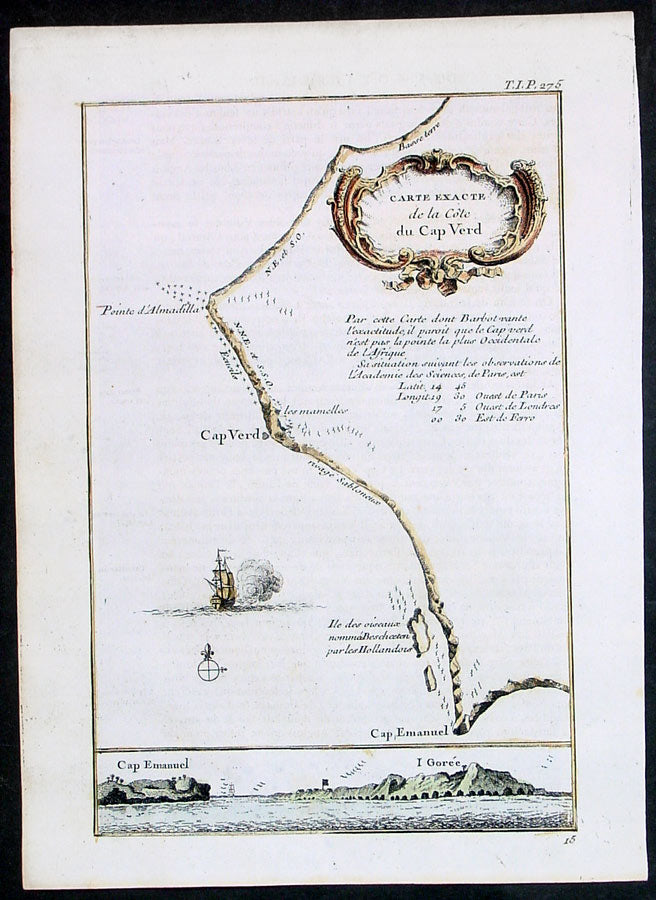 T.I.P. 275
Basse terre
CARTE EXACTE
de la Côte
du Cap Verd
N.E. et S.O.
Pointe d'Almadilla
Par cette Carte dont Barbot vante
l'exactitude, il paroit que le Cap verd
n'est pas la pointe la plus Occidentale
de l'Afrique
Sa situation suivant les observations de
l'Academie des Sciences, de Paris, est
Latit. 14 45
Longit. 19 30 Ouest de Paris
17 5 Ouest de Londres
00 30 Est de Ferro
N.N.E. et S.S.O.
les mamelles
Cap Verd
rivage Sabloneux
Ile des oiseaux
nommé Bescheeten
par les Hollandois
Cap Emanuel
Cap Emanuel
I Gorée
15